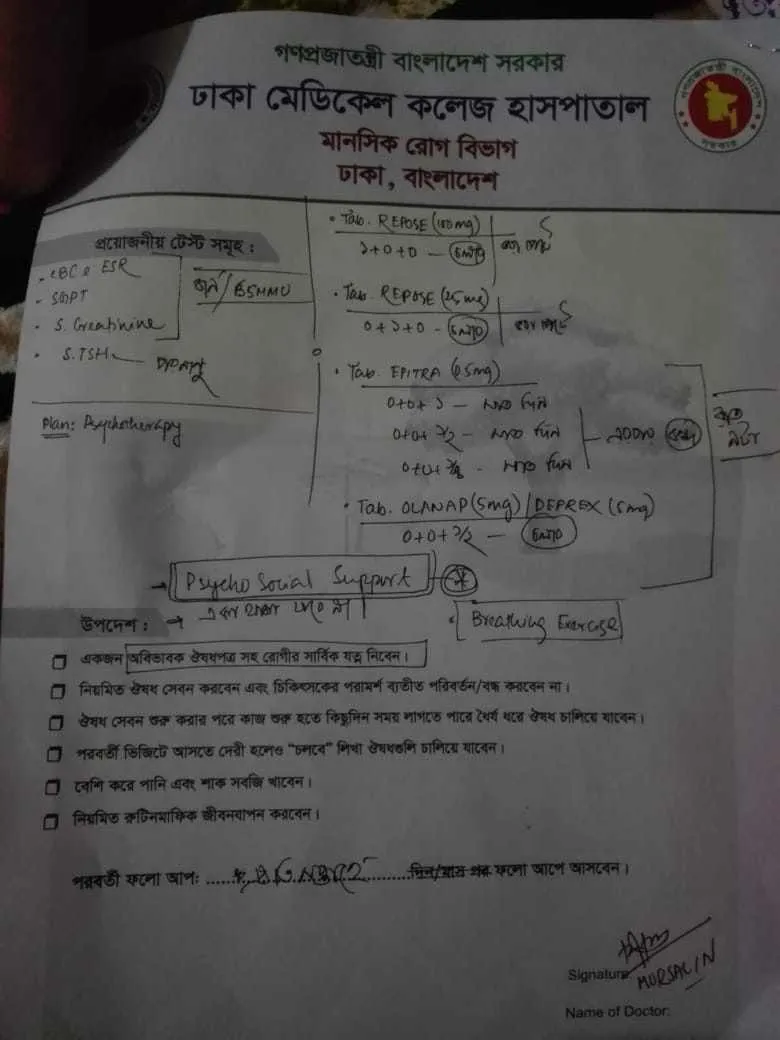 গণপ্রজাতন্ত্রী বাংলাদেশ সরকার
ঢাকা মেডিকেল কলেজ হাসপাতাল
মানসিক রোগ বিভাগ
ঢাকা, বাংলাদেশ
প্রয়োজনীয় টেস্ট সমূহ :
CBC ē ESR
SGPT
S. Creatinine
BSMMU
S.TSH
Plan: Psychotherapy
Tab. REPOSE (100mg)
১+০+০ — চলবে
Tab. REPOSE (25mg)
০+১+০ - চলবে
Tab. EPITRA (0.5mg)
০+০+ ১ — সাত দিন
০+০+ ১/২ — সাত দিন
০+০+ - সাত দিন
রাত
৯টা
Tab. OLANAP (5mg) / DEPREX (5mg)
০+০+১/২ — চলবে
Psycho Social Support
উপদেশ :
একা থাকা যাবে না।
Breathing Exercise
একজন অবিভাবক ঔষধপত্র সহ রোগীর সার্বিক যত্ন নিবেন।
নিয়মিত ঔষধ সেবন করবেন এবং চিকিৎসকের পরামর্শ ব্যতীত পরিবর্তন/বন্ধ করবেন না।
ঔষধ সেবন শুরু করার পরে কাজ শুরু হতে কিছুদিন সময় লাগতে পারে ধৈর্য ধরে ঔষধ চালিয়ে যাবেন।
পরবর্তী ভিজিটে আসতে দেরী হলেও “চলবে” লিখা ঔষধগুলি চালিয়ে যাবেন।
বেশি করে পানি এবং শাক সবজি খাবেন।
নিয়মিত রুটিনমাফিক জীবনযাপন করবেন।
পরবর্তী ফলো আপ: দিন/মাস পর ফলো আপে আসবেন।
Signature:
MORSALIN
Name of Doctor: